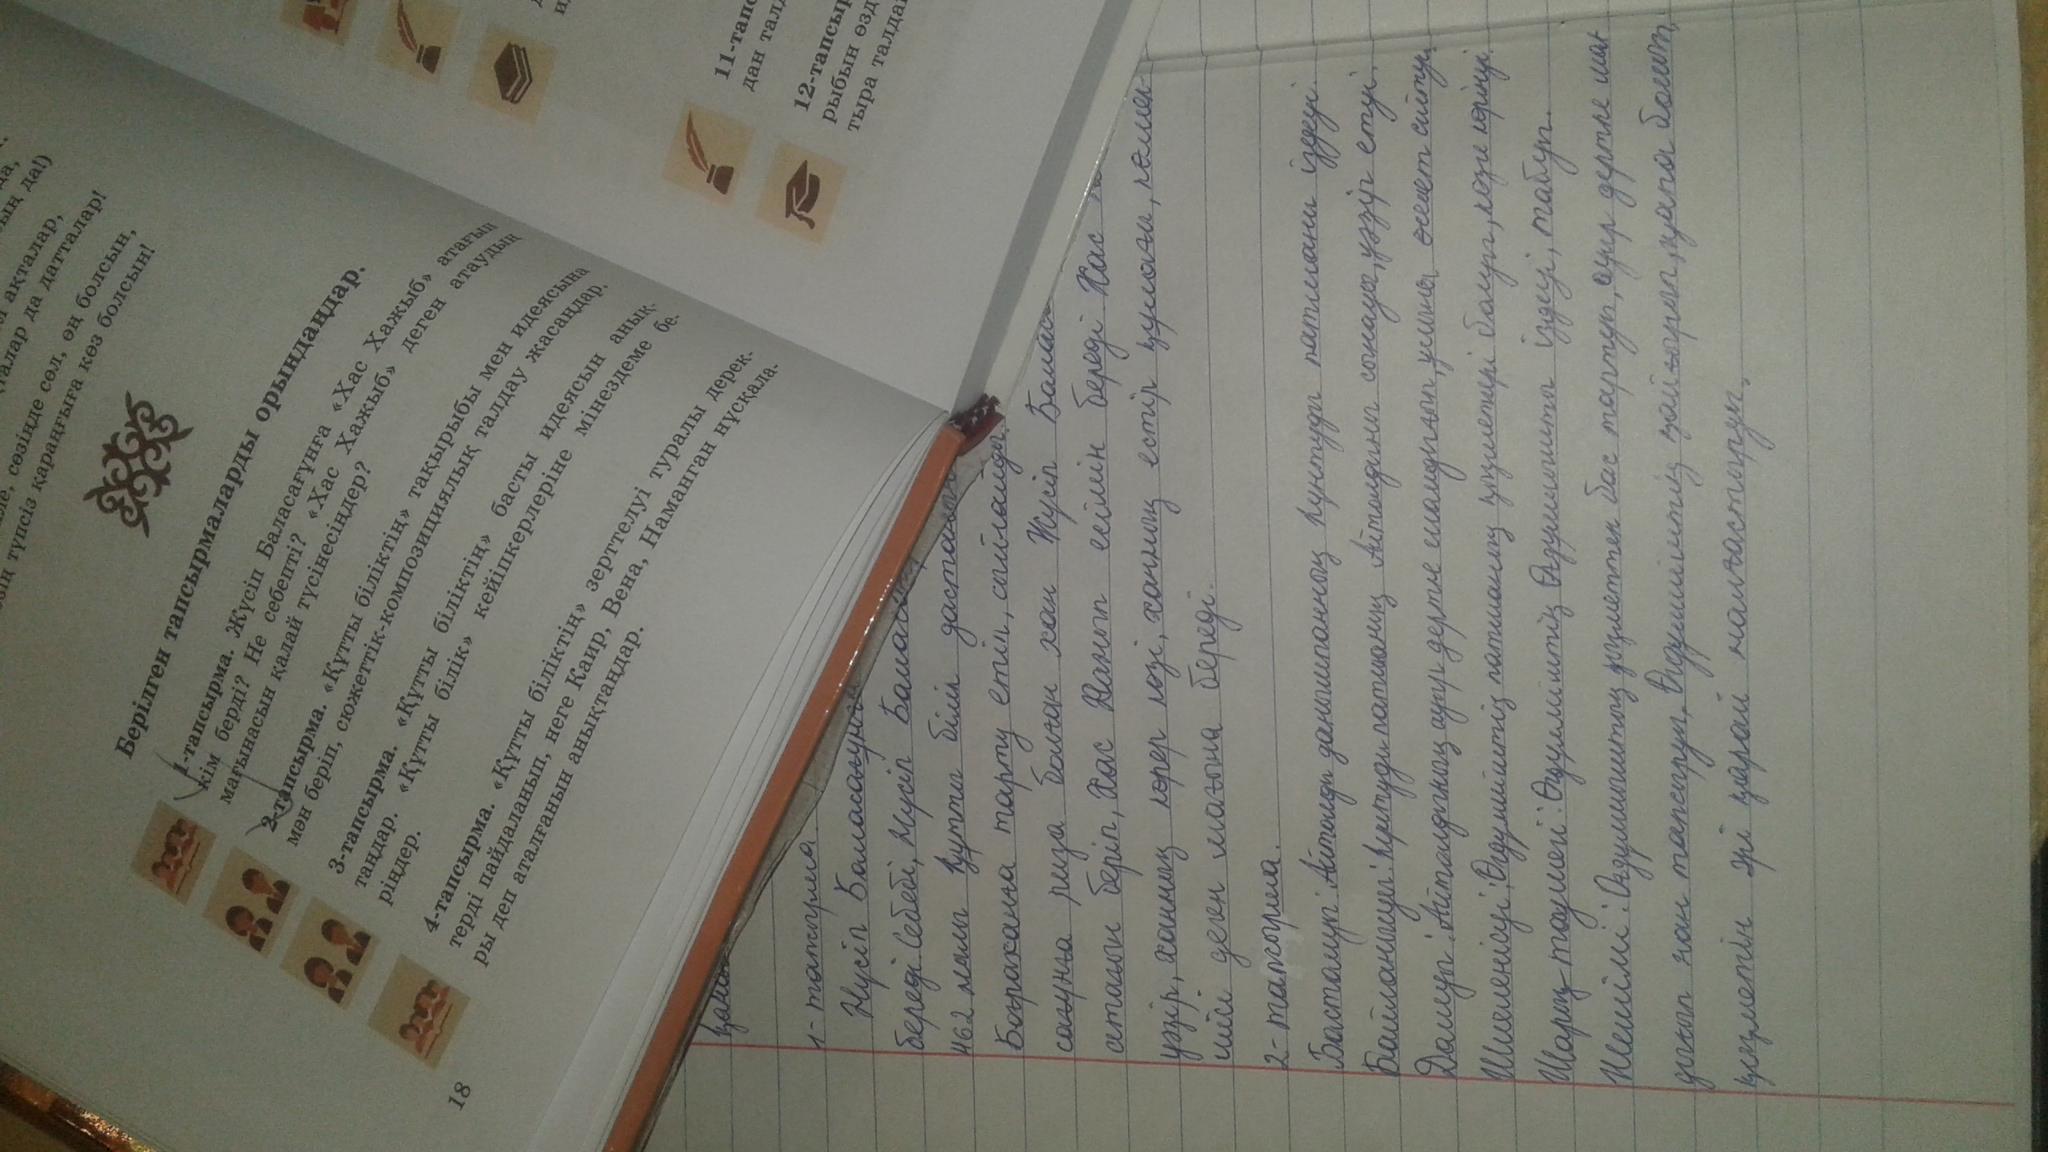 да,
ың да!)
м ақталар,
қталар да датталар!
ңде, сөзінде сөл, өң болсын,
зің түпсіз қараңғыға көз болсын!
Берілген тапсырмаларды орындаңдар.
1-тапсырма. Жүсіп Баласағұнға «Хас Хажыб» атағын
кім берді? Не себепті? «Хас Хажыб» деген атаудың
мағынасын қалай түсінесіңдер?
2-тапсырма. «Құтты біліктің» тақырыбы мен идеясына
мән беріп, сюжеттік-композициялық талдау жасаңдар.
3-тапсырма. «Құтты біліктің» басты идеясын анық-
таңдар. «Құтты білік» кейіпкерлеріне мінездеме бе-
ріңдер.
4-тапсырма. «Құтты біліктің» зерттелуі туралы дерек-
терді пайдаланып, неге Каир, Вена, Наманган нұсқала-
ры деп аталғанын анықтаңдар.
18
11-тапс
дан талд
12-тапсыр
рыбын өзд
тыра талдаң
1-тапсырма
Жүсіп Баласағұнға
береді. Себебі, Жүсіп Балас
462 жылы Құтты білік дастан
Боғраханға тарту етіп, сыйлайды.
сағұнға риза болған хан Жүсіп Балас
атағын беріп, Хас Хажып есімін береді Хас
уәзір, ханның көрер көзі, ханның естір құлағы, көмек-
шісі деген мағына береді.
2-тапсырма.
Басталуы: Айтолды даналықтың Күнтуды патшаны іздеуі.
Байланысуы: Күнтуды патшаның Айтолдыны сынауы, уәзір етуі.
Дамуы: Айтолдының ауыр дертке шалдығып, ұлына өсиет айтуы.
Шиеленісуі: Өгдүлміштің патшаның қызметкері болуы, көзге көрінуі.
Шарықтау шегі: Өгдүлміштің Одғұрмышты іздеуі, табуы.
Шешімі: Одғұрмыштың қызметтен бас тартуы, ауыр дертке шал
дығып жан тапсыруы. Өгдүлміштің қайғырып, қапа болып,
қызметін әрі қарай жалғастыруы.